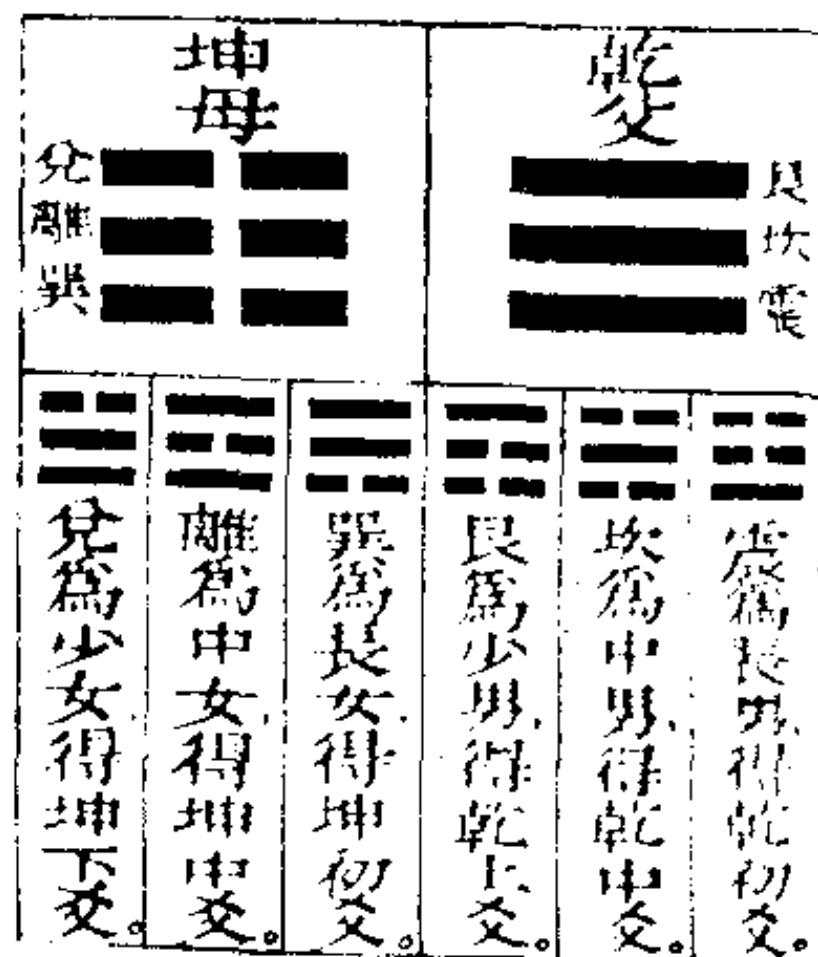 乾父
艮
坎
震
坤母
兌
離
巽
震爲長男、得乾初爻。
坎爲中男、得乾中爻。
艮爲少男、得乾上爻。
巽爲長女、得坤初爻。
離爲中女、得坤中爻。
兌爲少女、得坤下爻。